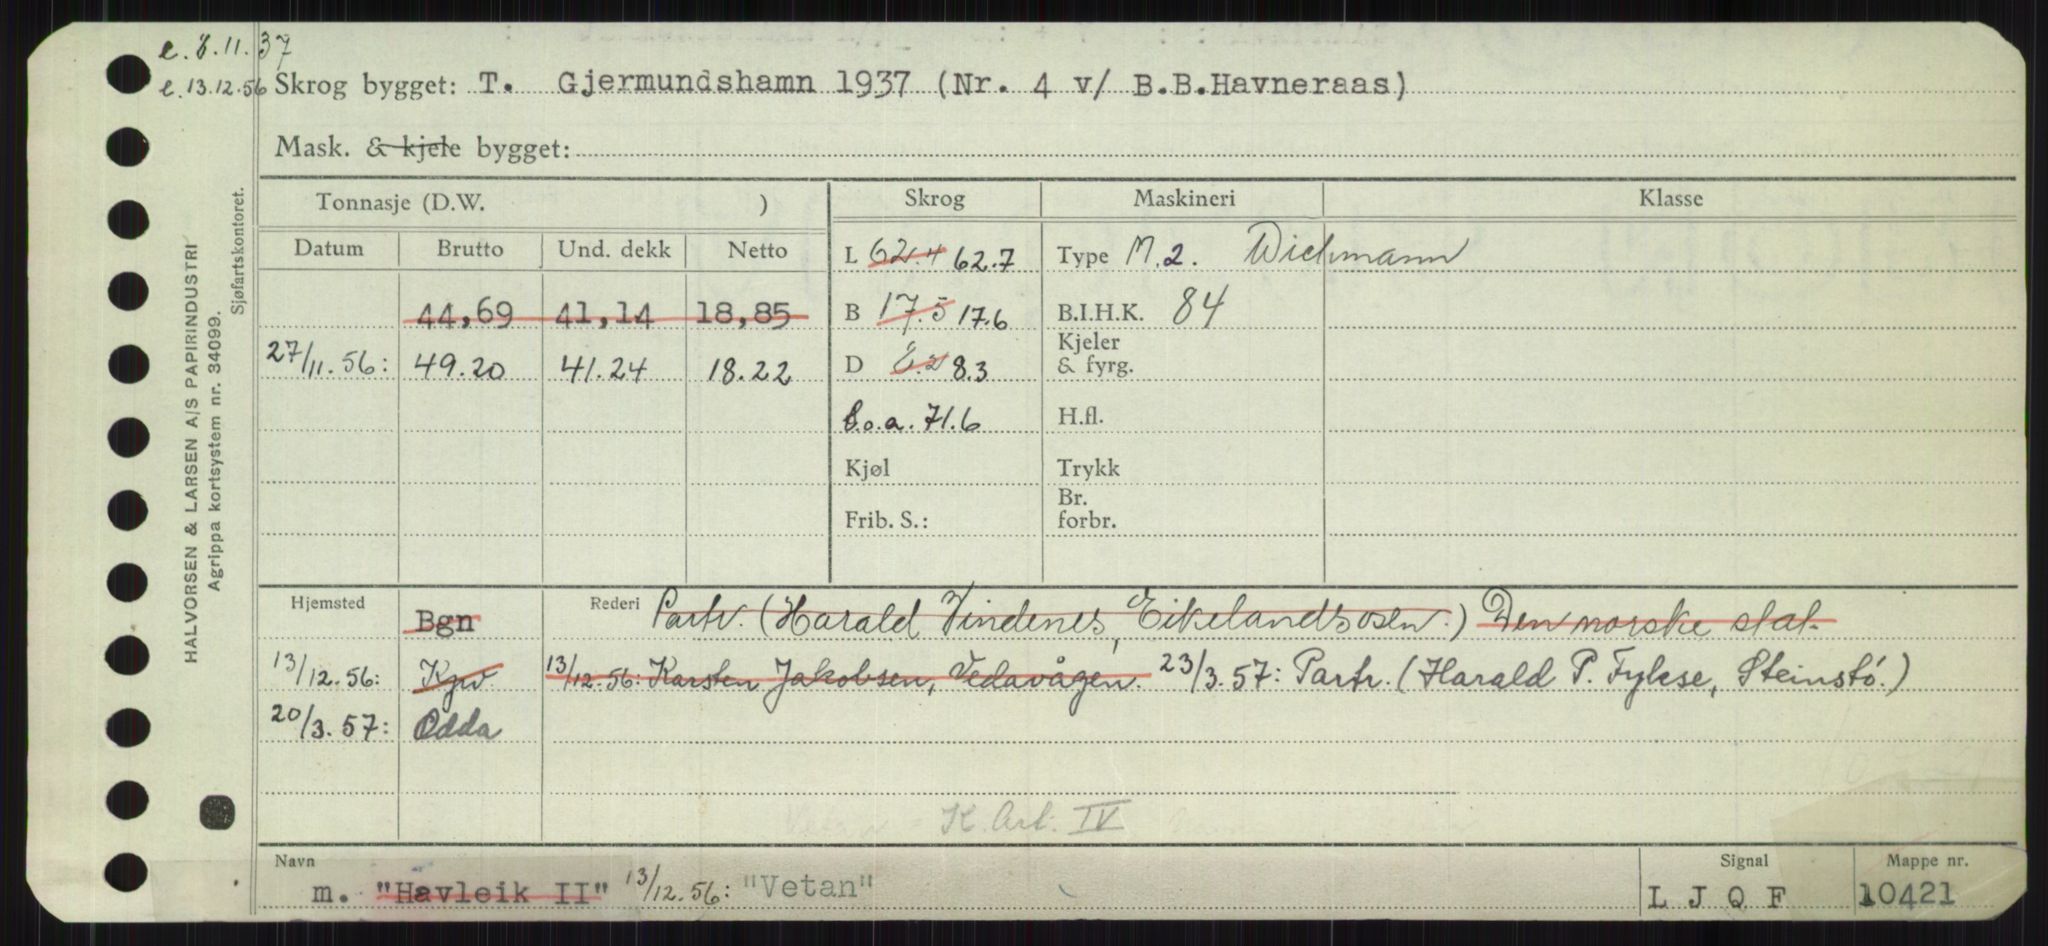 e. 8.11.37
e. 13.12.56 Skrog bygget: T. Gjermundshamn 1937 (Nr. 4 v/ B.B.Havneraas)
Mask. & kjele bygget:
HALVORSEN & LARSEN A/S PAPIRINDUSTRI
Agrippa kortsystem nr. 34099.
Sjøfartskontoret.
Tonnasje (D.W. ) Skrog Maskineri Klasse
Datum Brutto Und. dekk Netto L 62.4 62.7 Type M.2. Wichmann
44,69 41,14 18,85 B 17.5 17.6 B.I.H.K. 84
27/11.56: 49.20 41.24 18.22 D 8.2 8.3 Kjeler & fyrg.
l.o.a. 71.6 H.fl.
Kjøl Trykk
Frib. S.: Br. forbr.
Hjemsted Bgn Rederi Partr. (Harald Vindenes, Eikelandsosen.) Den norske stat.
13/12.56: Kpv. 13/12.56: Karsten Jakobsen, Vedavågen. 23/3.57: Partr. (Harald P. Fykse, Steinstø.)
20/3.57: Odda
K. Art. IV
Navn Signal Mappe nr.
m. "Havleik II" 13/12.56: "Vetan" L J Q F 10421